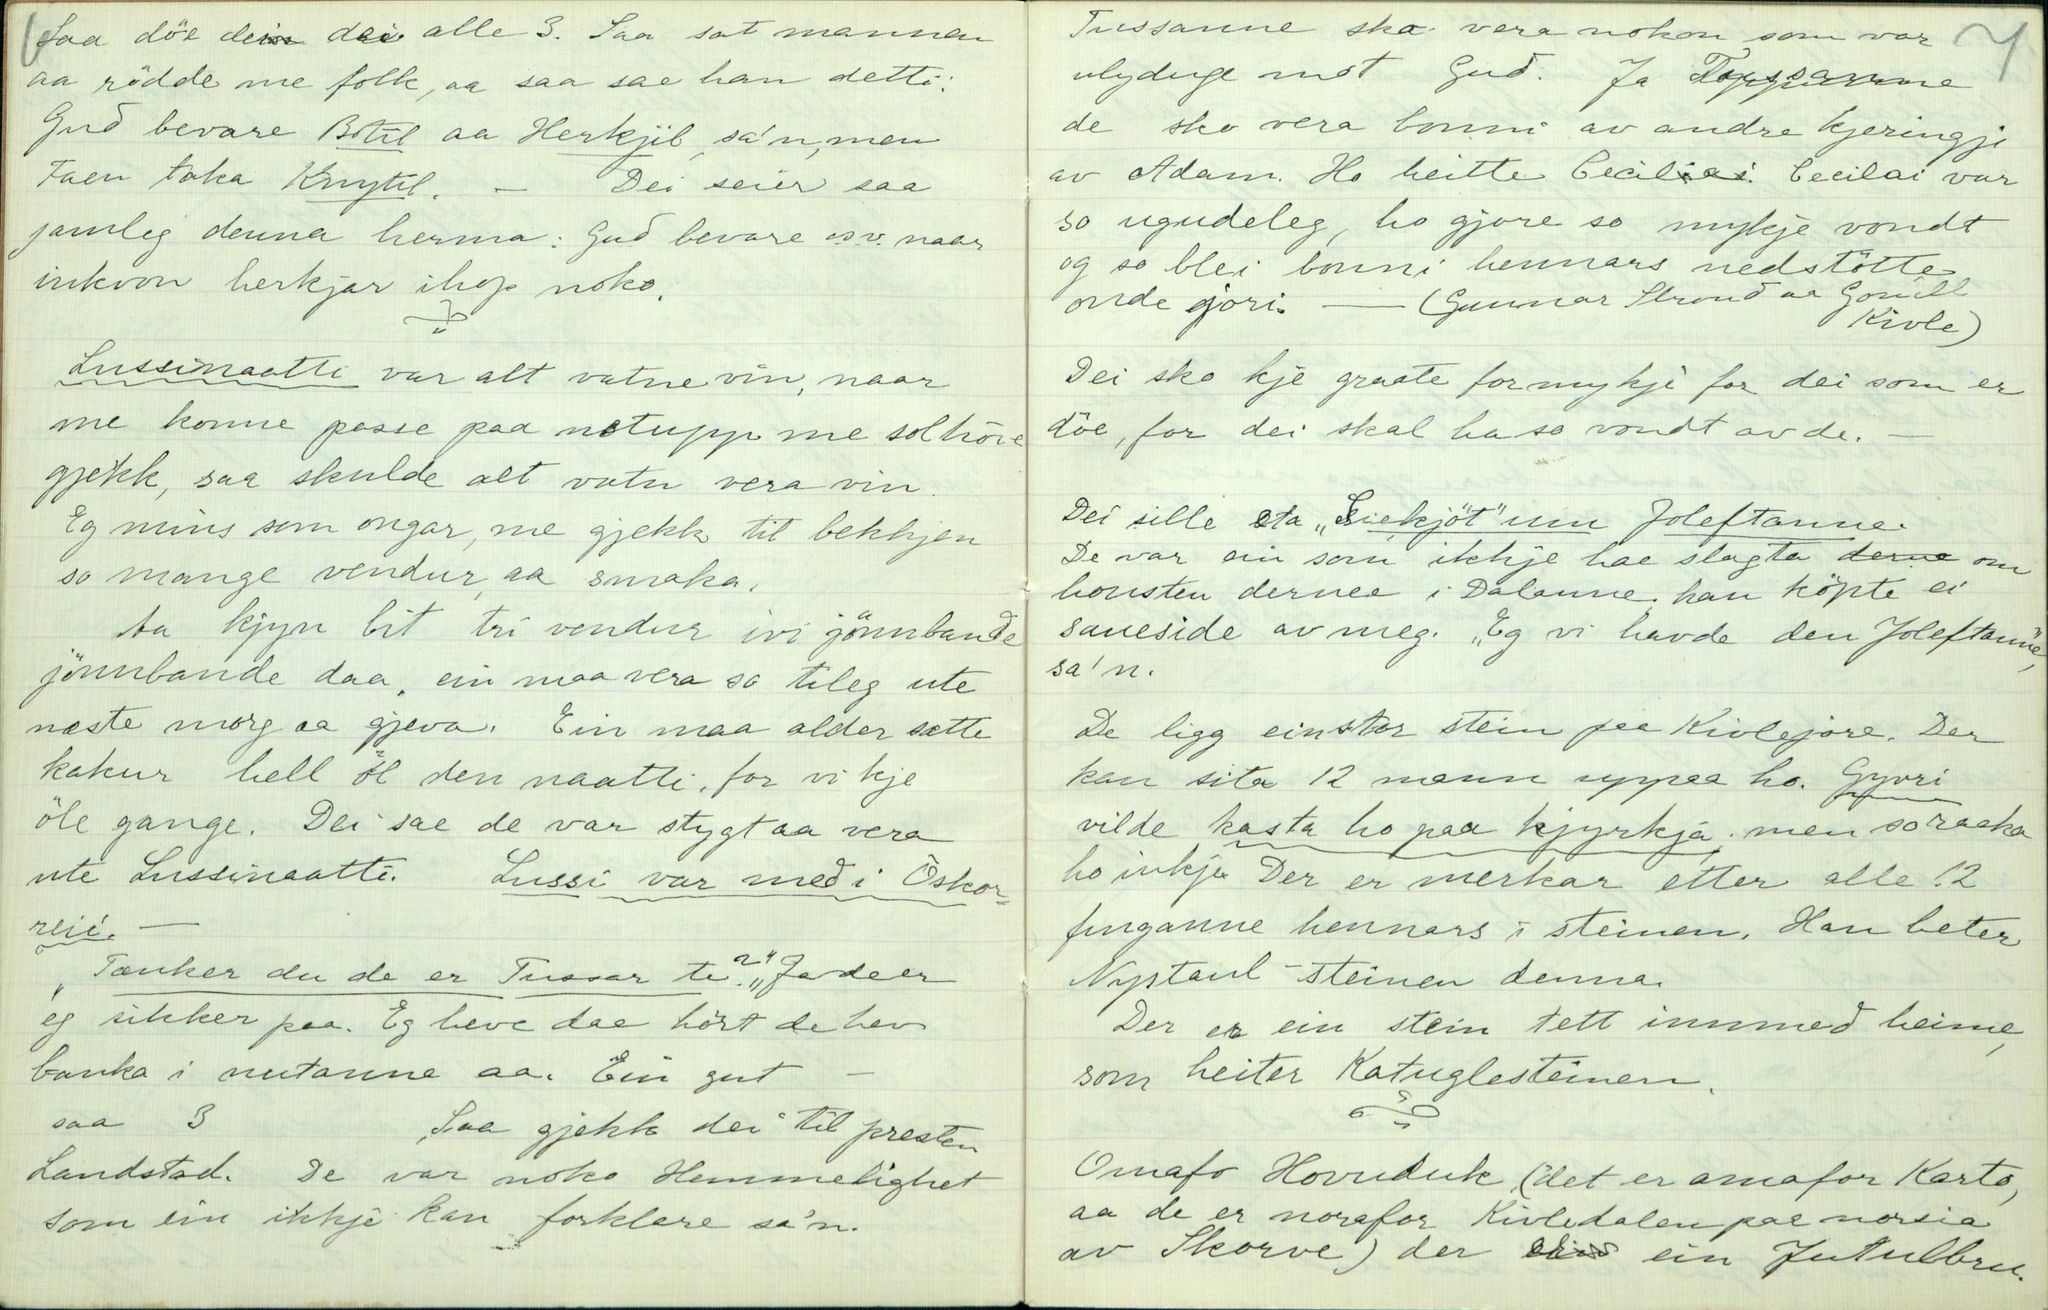 Saa döe dei alle 3. Saa sat mannen
aa rödde me folk, aa saa sae han detti:
Gud bevare Botil aa Herkjil, sa'n, men
Faen taka Knytil. — Dei seier saa
jamleg denna herma: Gud bevare osv. naar
inkvon herkjar ihop noko.
Lussinaatti var alt vatne vin, naar
me konne passe paa netupp me solhöve
gjekk, saa skulde alt vatn vera vin.
Eg mins som ongar, me gjekk til bekkjen
so mange vendur, aa smaka.
Aa kjyn bit tri vendur ivi jönnbande
jönnbande daa, ein maa vera so tileg ute
næste morg aa gjeva. Ein maa alder sette
kakur hell öl den naatti, for vi kje
öle gange. Dei sae de var stygt aa vera
ute Lussinaatti. Lussi var med i Oskor-
reii. —
"Tænker du de er Tussar te?" "Ja de er
eg sikker paa. Eg heve dae hört de hev
banka i nutanne aa. Ein gut —
saa 3 Saa gjekk dei til presten
Landstad. De var noko Hemmelighet
som ein ikkje kan forklare sa'n.
7
Tussanne sko vera nokon som var
ulyduge mot Gud. Ja Tussanne
de sko vera bonni av andre kjeringji
av Adam. Ho heitte Cecilai. Cecilai var
so ugudeleg, ho gjore so mykje vondt
og so blei bonni hennars nedstötte
onde jori. — (Gunnar Strond aa Gonill
Kivle)
Dei sko kje graate formykji for dei som er
döe, for dei skal ha so vondt av de. —
Dei sille eta "Siekjöt" um Joleftanne.
De var ein som ikkje hae slagta derne om
housten dernee i Dalanne, han köpte ei
saueside av meg. "Eg vi havde den Joleftanne",
sa'n.
De ligg ein stor stein paa Kivlejore. Der
kan sita 12 mann uppaa ho. Gyvri
vilde kasta ho paa kjyrkja, men so raaka
ho inkje. Der er merkar etter alle 12
finganne hennars i steinen. Han heter
Nystaul-steinen denna.
Der er ein stein tett innmed heime,
som heiter Katuglesteinen.
Omafo Hovuduk (det er amafor Karto,
aa de er norafor Kivledalen paa norsia
av Skorve) der ein Jutulbru.